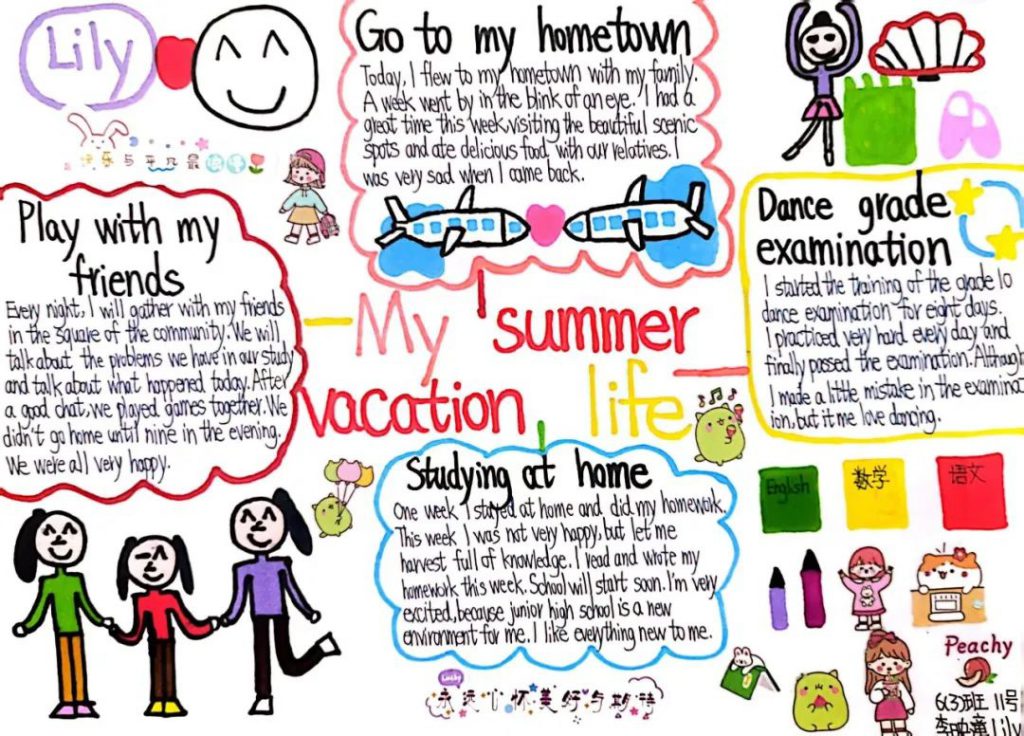 Lily
快乐与平凡最浪漫
Go to my hometown
Today, I flew to my hometown with my family.
A week went by in the blink of an eye. I had a
great time this week, visiting the beautiful scenic
spots and ate delicious food with our relatives. I
was very sad when I came back.
Play with my
friends
Every night, I will gather with my friends
in the square of the community. We will
talk about the problems we have in our study
and talk about what happened today. After
a good chat, we played games together. We
didn't go home until nine in the evening.
We were all very happy.
My summer
vacation life
Dance grade
examination
I started the training of the grade 10
dance examination for eight days.
I practiced very hard every day and
finally passed the examination. Although
I made a little mistake in the examinat
ion, but it me love dancing.
Studying at home
One week I stayed at home and did my homework.
This week I was not very happy, but let me
harvest full of knowledge. I read and wrote my
homework this week. School will start soon. I'm very
excited, because junior high school is a new
environment for me. I like everything new to me.
English
数学
语文
Lucky
永远心怀美好与期待
Peachy
6(3)班 11号
李映潼 Lily